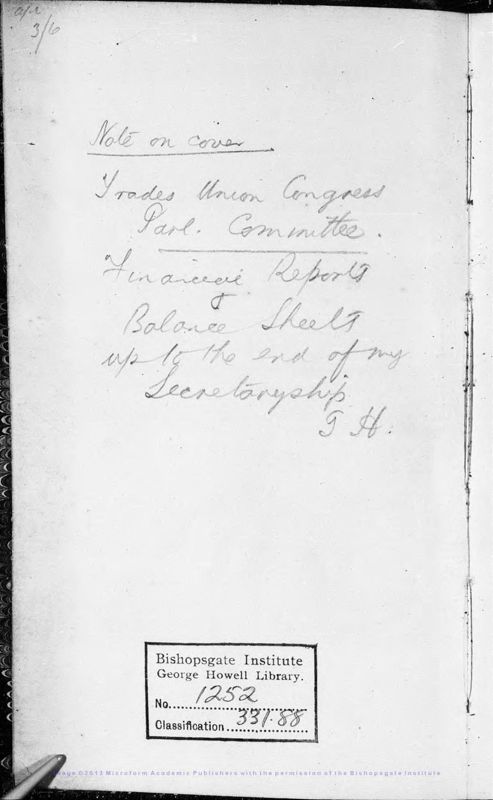 3/6
Note on cover
Trades Union Congress
Parl. Committee.
Financial Reports
&
Balance Sheets
up to the end of my
Secretaryship
G H.
Bishopsgate Institute
George Howell Library.
No. 1252
Classification 331.88
Image ©2013 Microform Academic Publishers with the permission of the Bishopsgate Institute